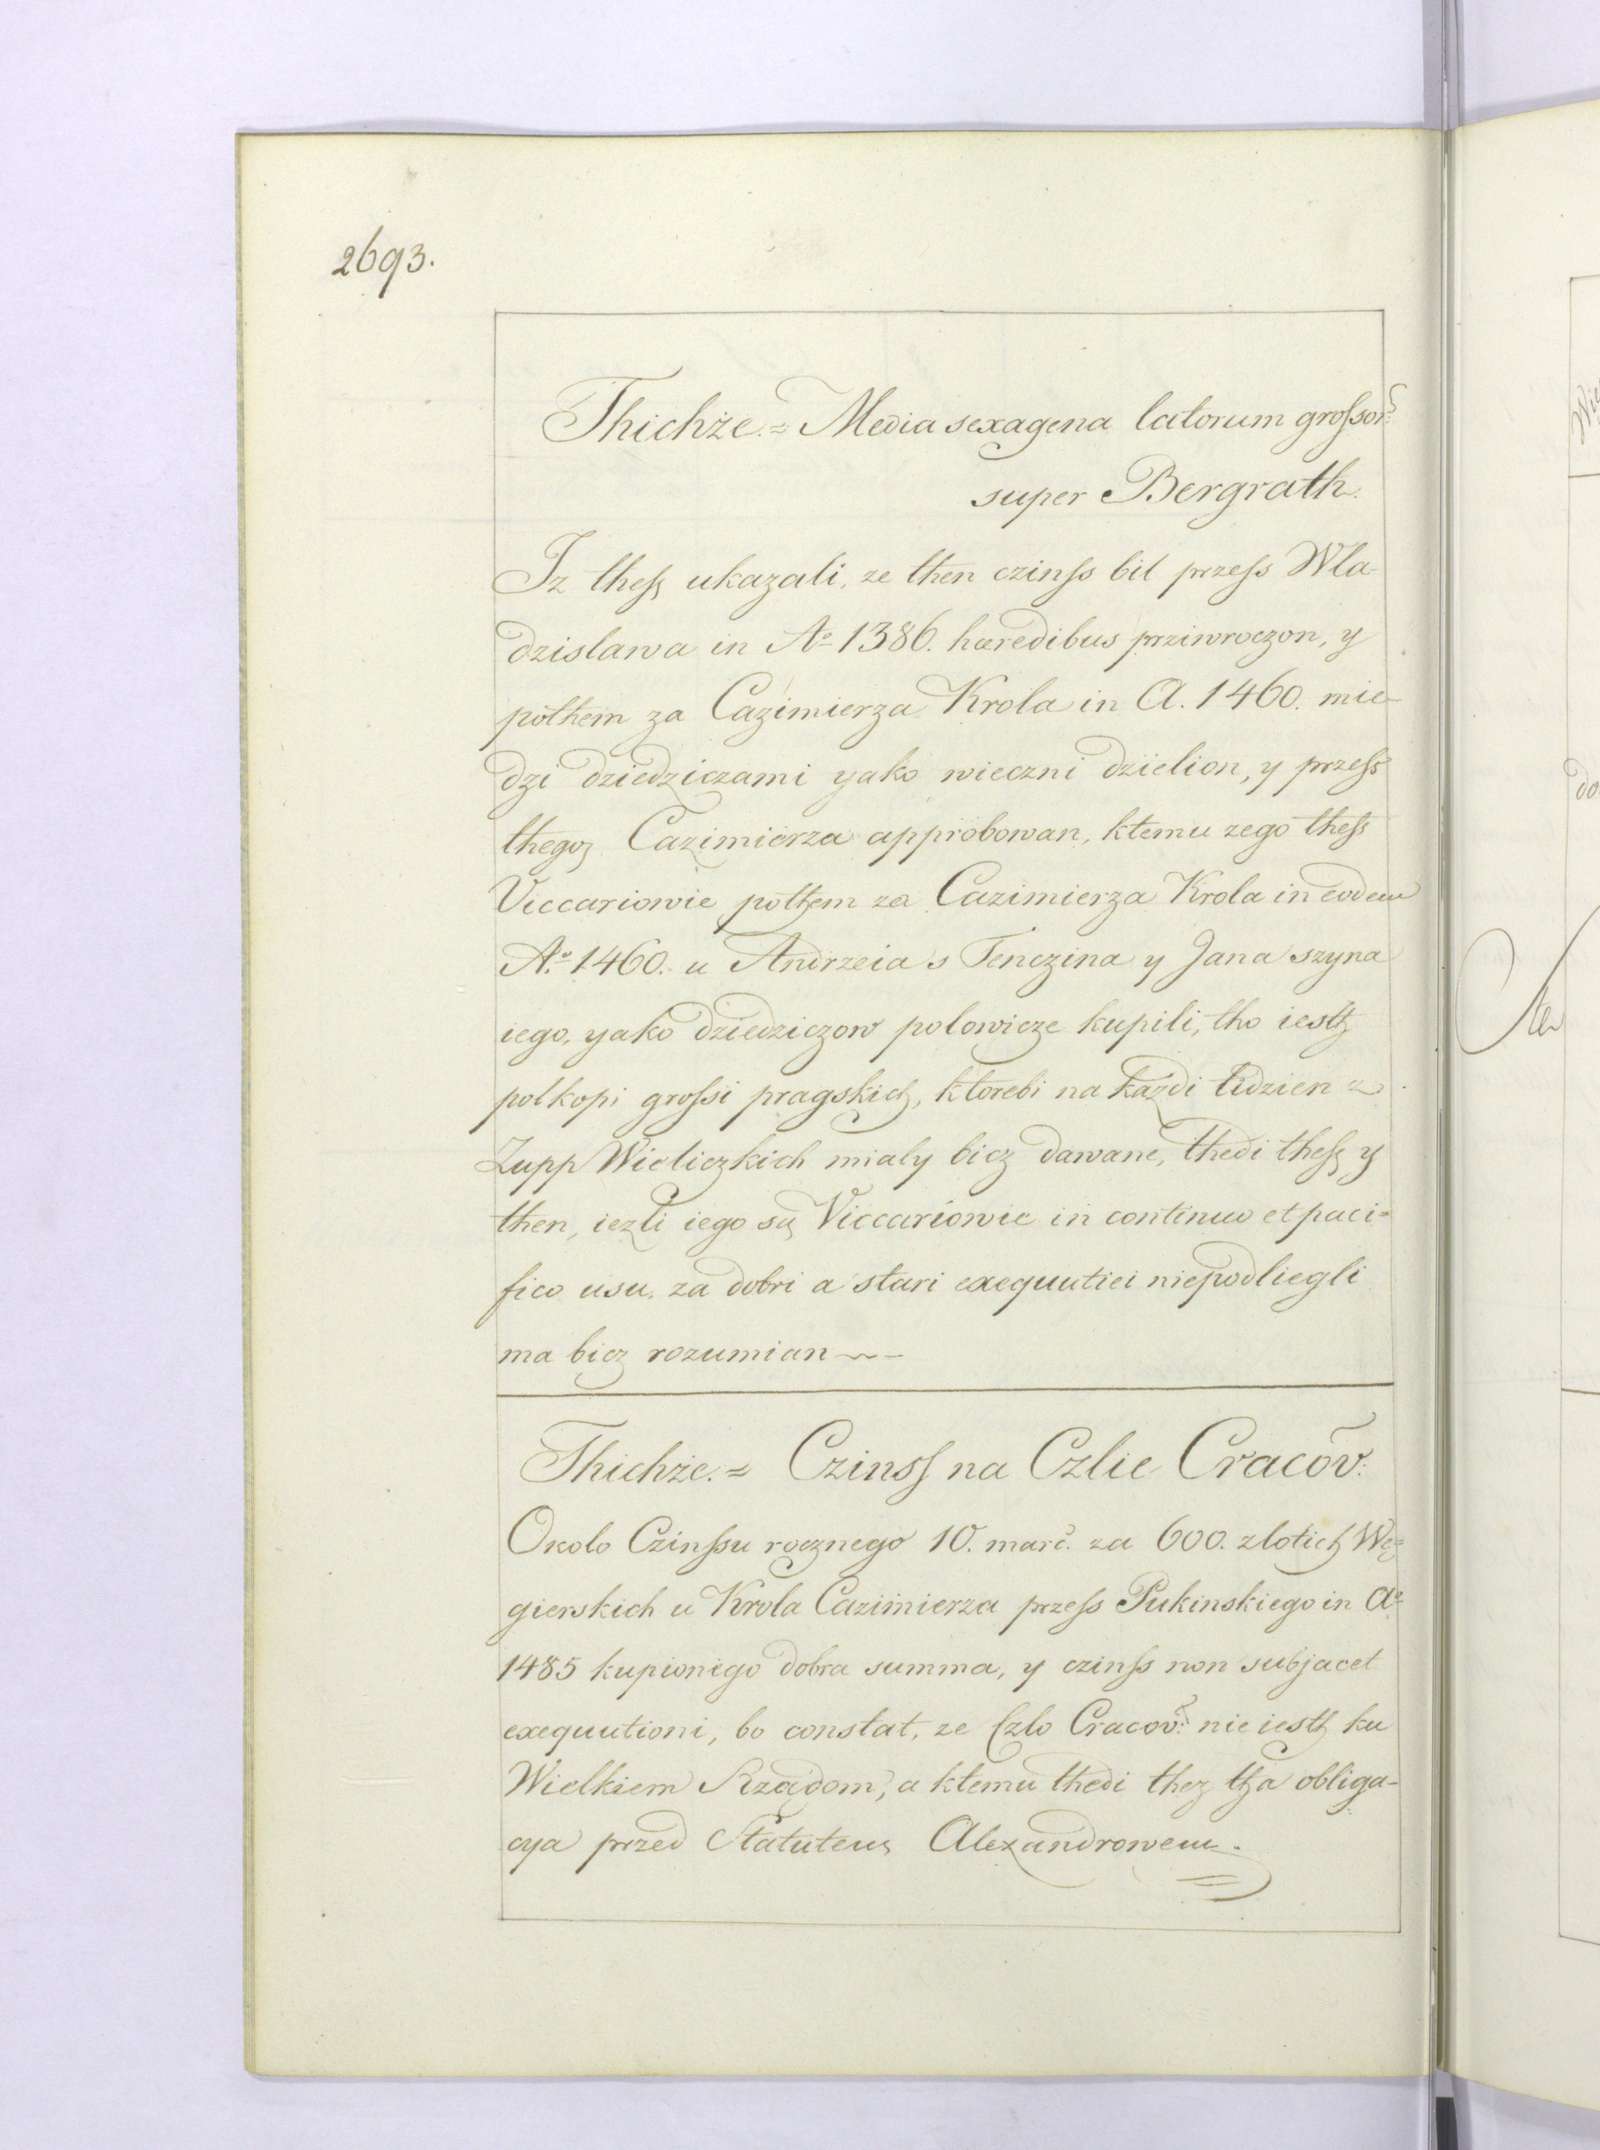 2693.
Thichże.= Media sexagena latorum grossor:
super Bergrath.
Iz thess ukazali, ze then czinss bil przess Wla-
dzislawa in A° 1386. hæredibus prziwroczon, y
pothem za Cazimierza Krola in A. 1460. mie-
dzi dziedziczami yako wieczni dzielion, y przess
thegoz Cazimierza approbowan, ktemu zego thess
Viccariowie pothem za Cazimierza Krola in eodem
A.° 1460. u Andrzeia s Tenczina y Jana szyna
iego, yako dziedziczow polowicze kupili, tho iesth
polkopi grossi pragskich, ktorebi na kazdi tidzien z
Zupp Wieliczkich mialy bicz dawane, thedi thess y
then, iezli iego są Viccariowie in continuo et paci=
fico usu, za dobri a stari exequutiei niepodliegli
ma bicz rozumian
Thichże.= Czinss na Czlie Cracov:
Okolo Czinssu rocznego 10. marc. za 600. zlotich Wę=
gierskich u Krola Cazimierza przess Pukinskiego in A°
1485 kupionigo dobra summa, y czinss non subjacet
exequutioni, bo constat, ze Czlo Cracov: nie iesth ku
Wielkiem Rządom, a ktemu thedi thez tha obliga-
cya przed Statutem Alexandrowem.